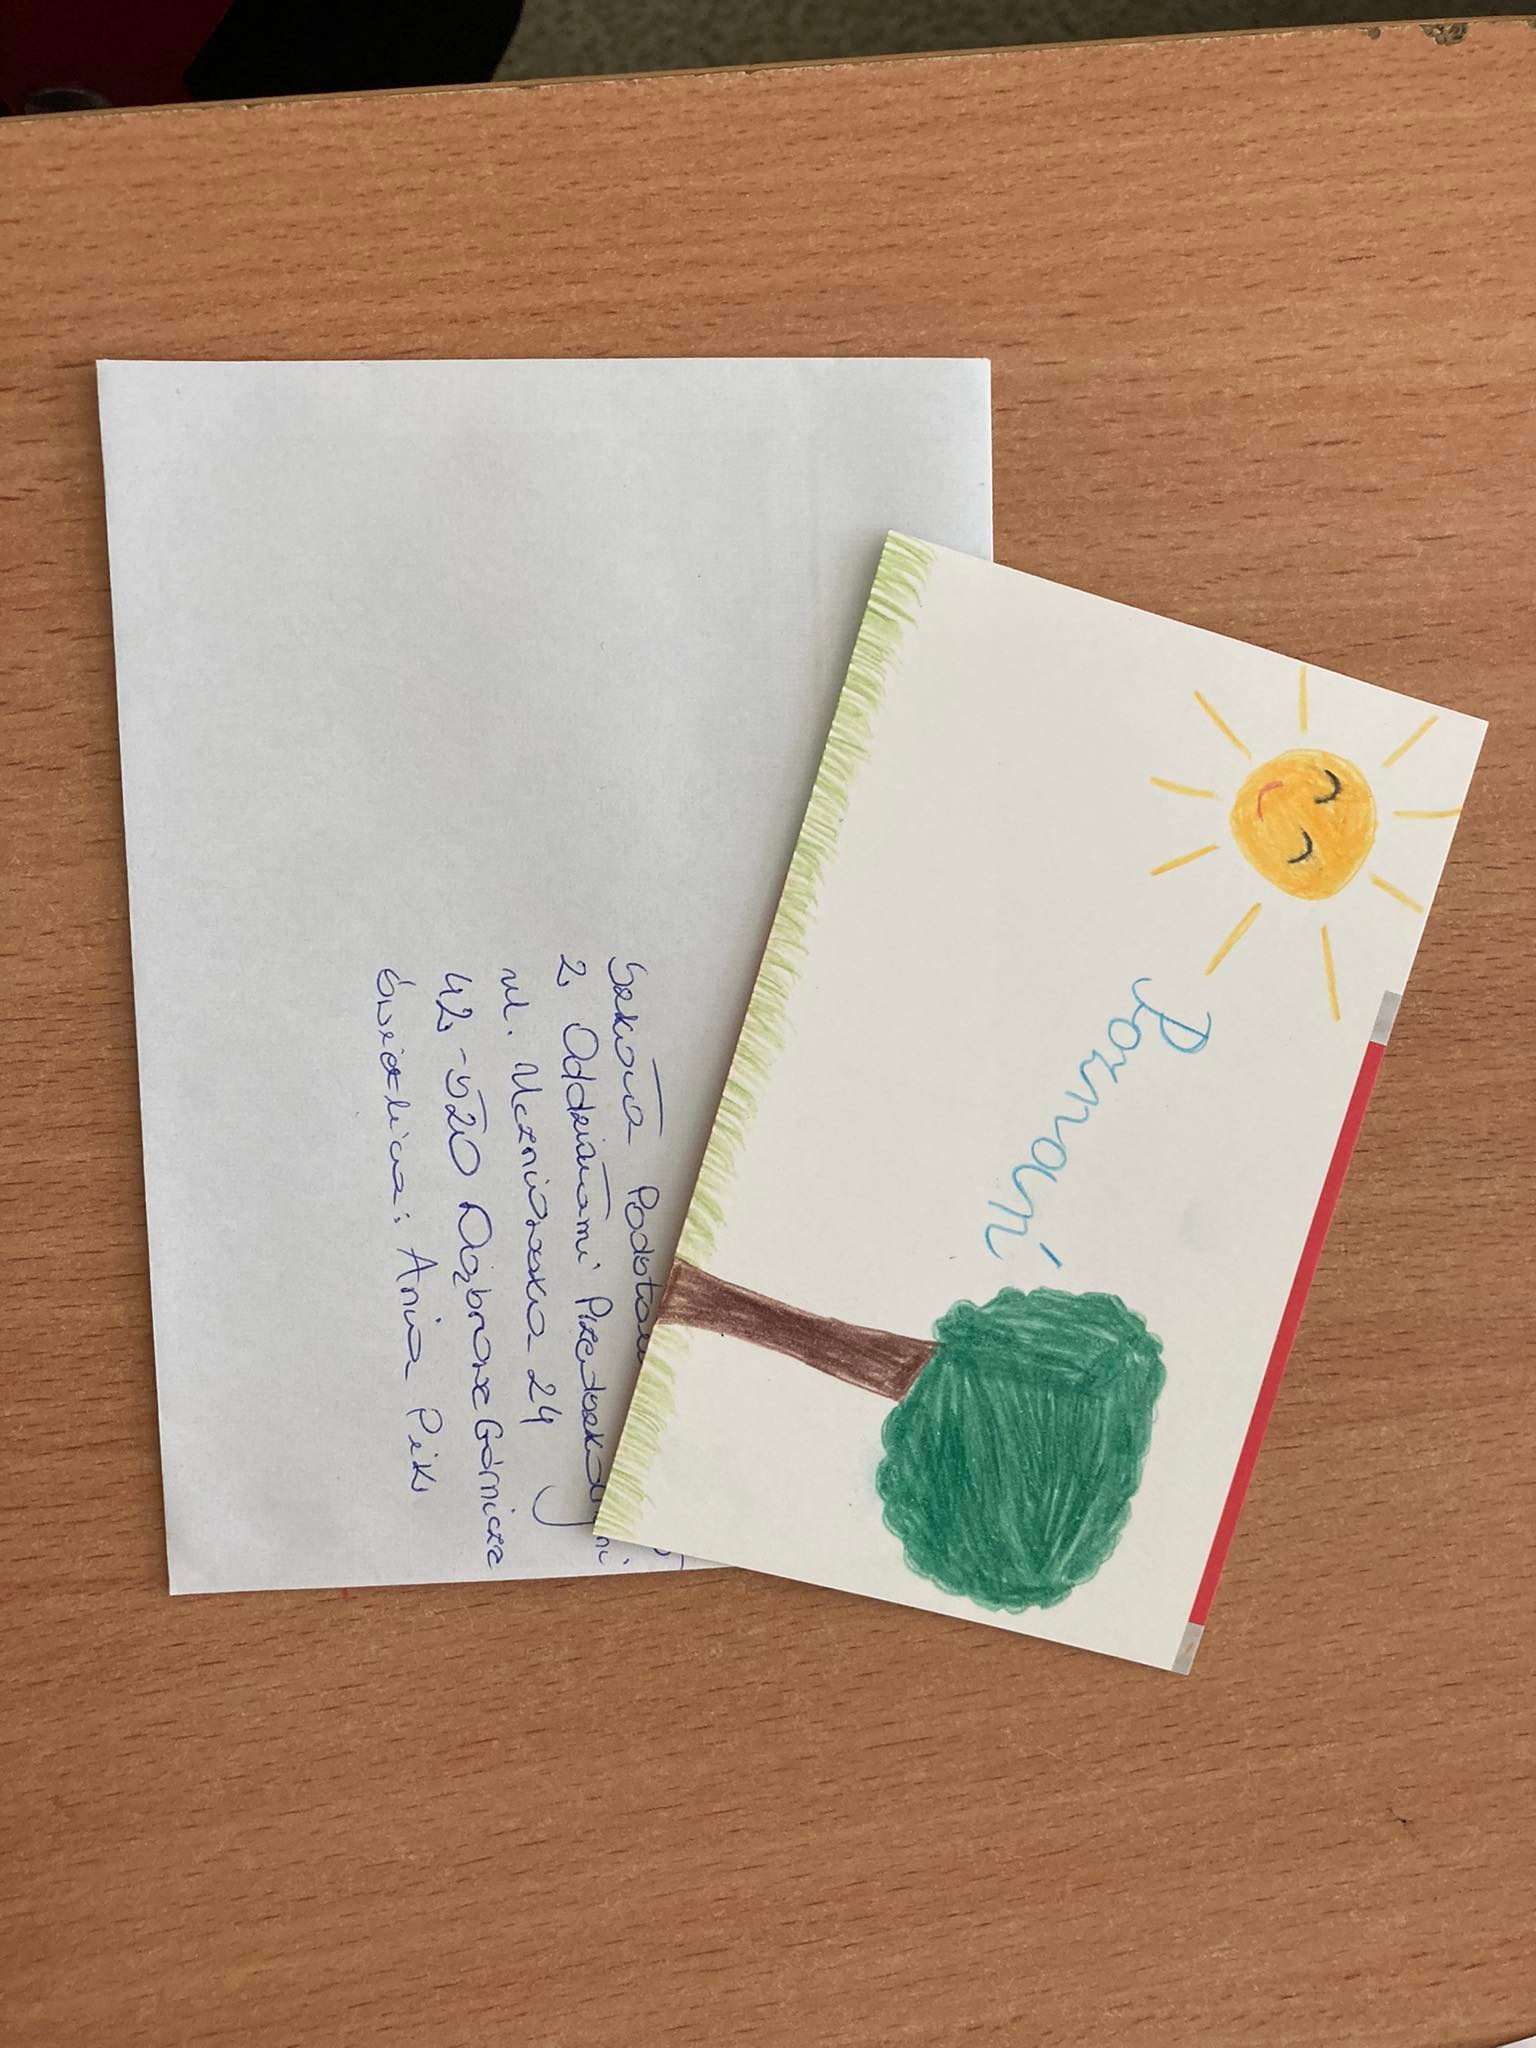 Szkoła Podstaw
z Oddziałami Przedszkolnymi
ul. Uczniowska 24
42-520 Dąbrowa Górnicza
świetlica: Ania Pik
Poznań